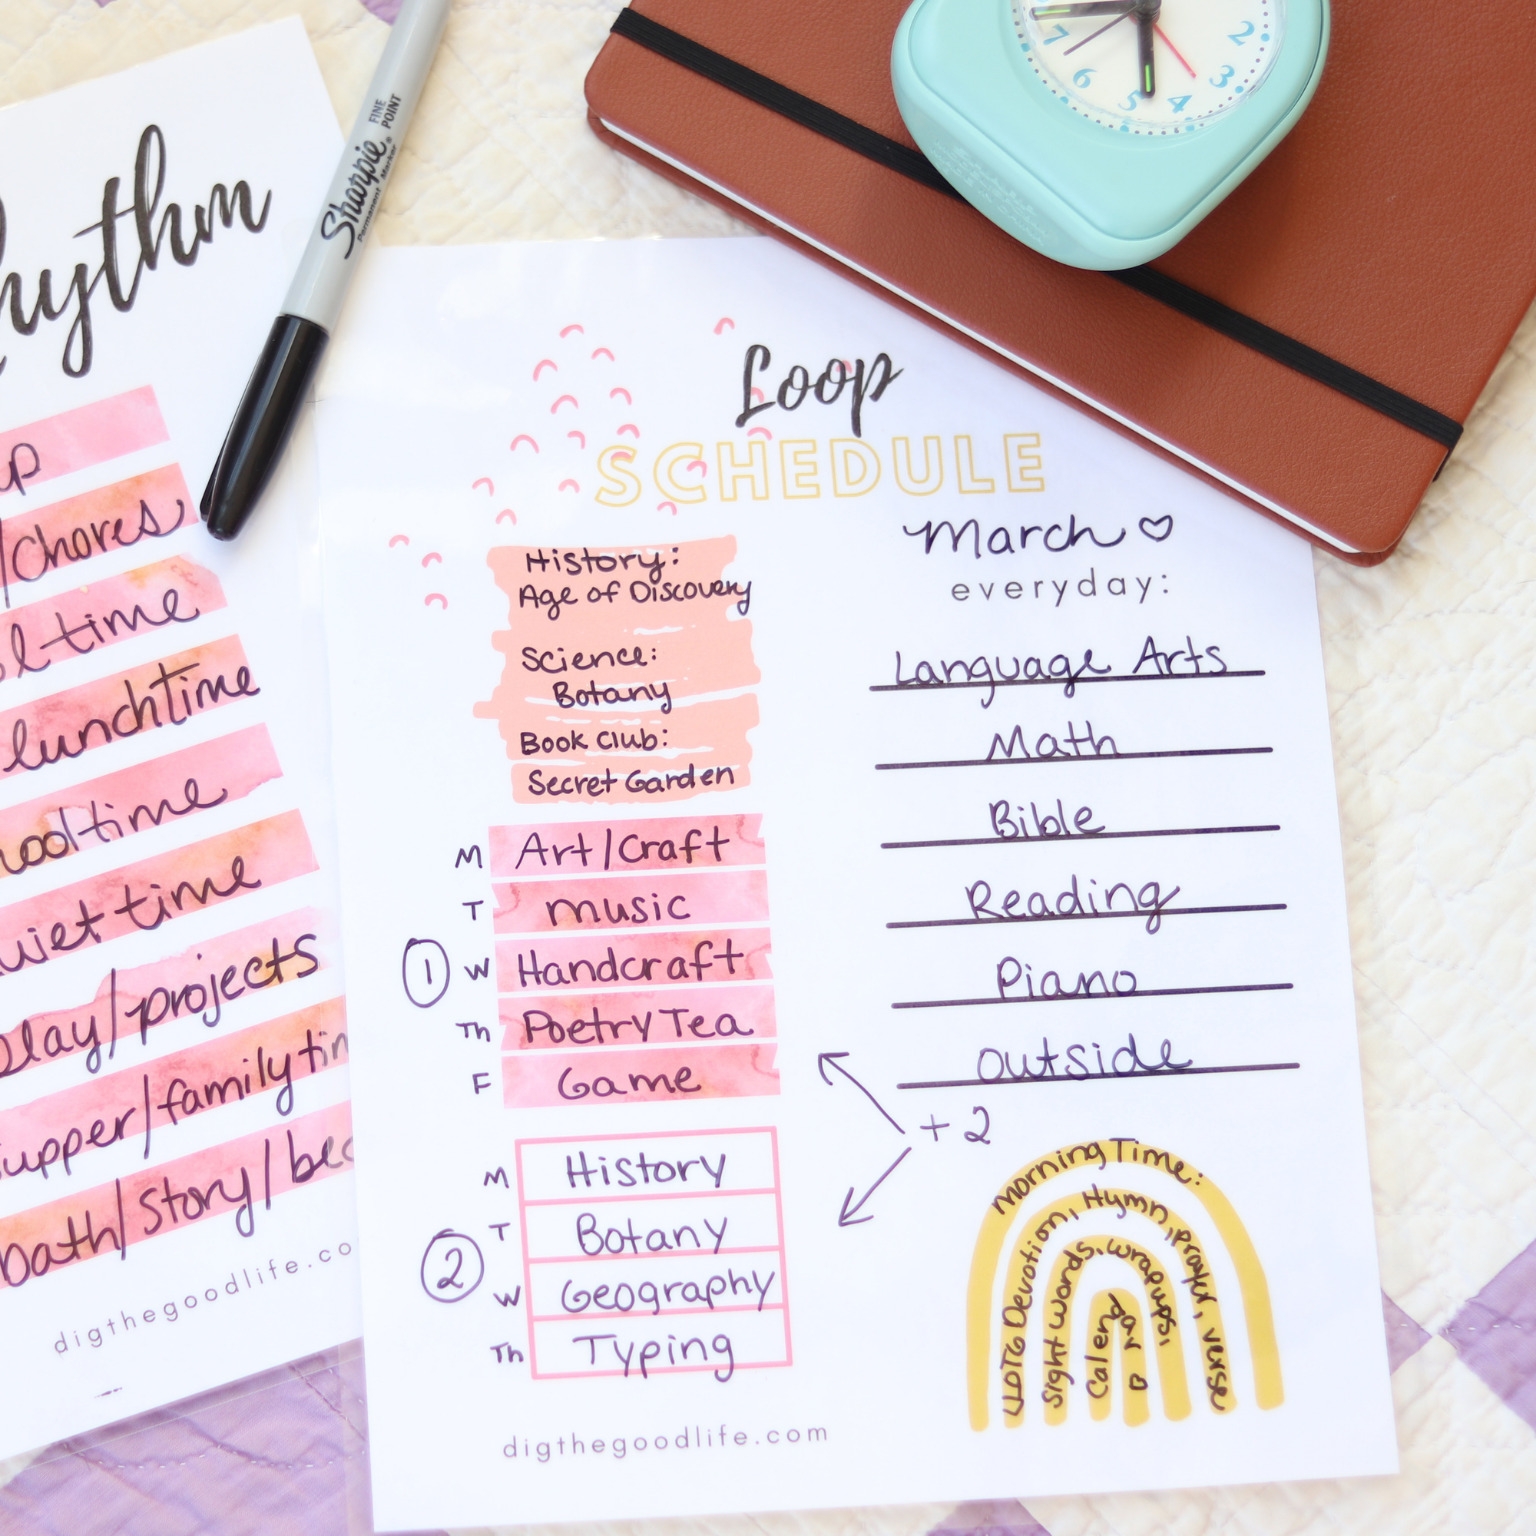 Rhythm
/chores
lunchtime
play/projects
supper/family
bath/story/
digthegoodlife.co
Sharpie
FINE
POINT
Permanent Marker
2
3
4
5
6
7
Loop
SCHEDULE
March ♡
everyday:
Language Arts
Math
Bible
Reading
Piano
outside
+2
History:
Age of Discovery
Science:
Botany
Book Club:
Secret Garden
①
M Art/Craft
T music
W Handcraft
Th Poetry Tea
F Game
②
M History
T Botany
W Geography
Th Typing
Morning Time:
LLOTG Devotion, Hymn, prayer, verse
Sight Words, wrapups,
Calendar
digthegoodlife.com